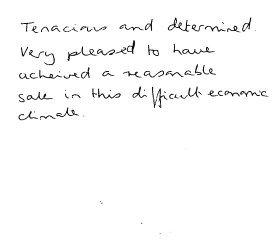 Tenacious and determined.
Very pleased to have
acheived a reasonable
sale in this difficult economic
climate.